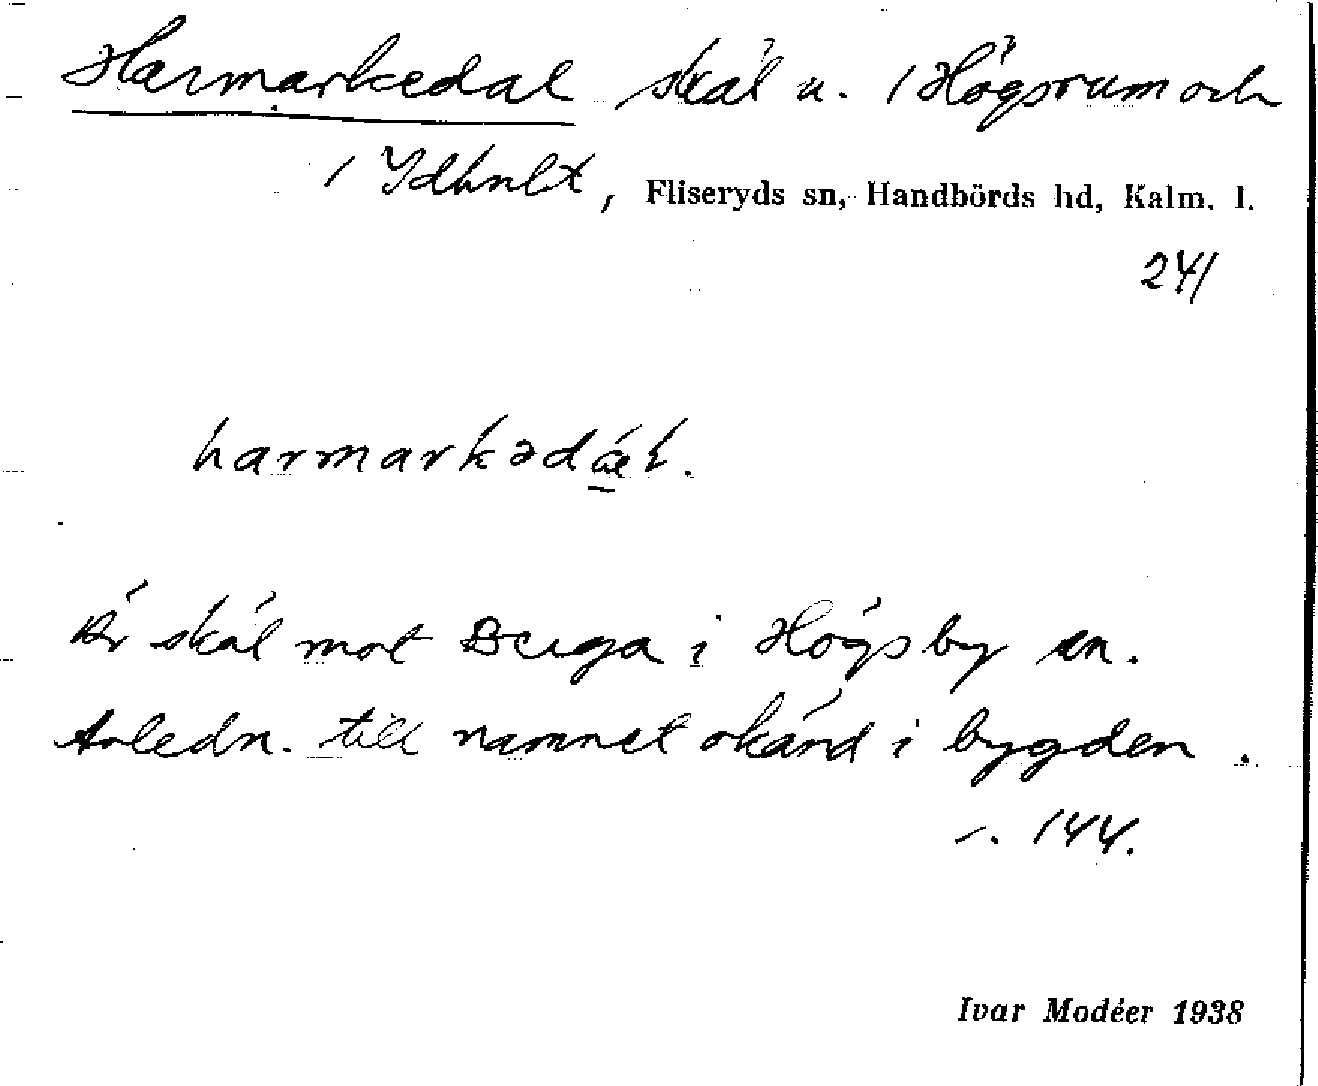 Harmarkedal skäl u. / Högsrum och
/ Idhult, Fliseryds sn, Handbörds hd, Kalm. l.
241
harmarkədál.
Är skäl mot Berga i Högsby sn.
Anledn. till namnet okänd i bygden.
144.
Ivar Modéer 1938